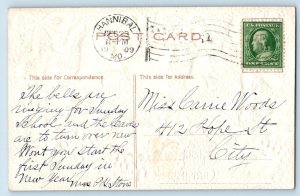 HANNIBAL
DEC 25
09
MO
POST CARD
This side for Correspondence.
This side for Address.
The bells are
ringing for Sunday
School and the leaves
are to turn over new
Wont you start the
first Sunday in
New Year.
Miss Carrie Woods
412 Hope St
City